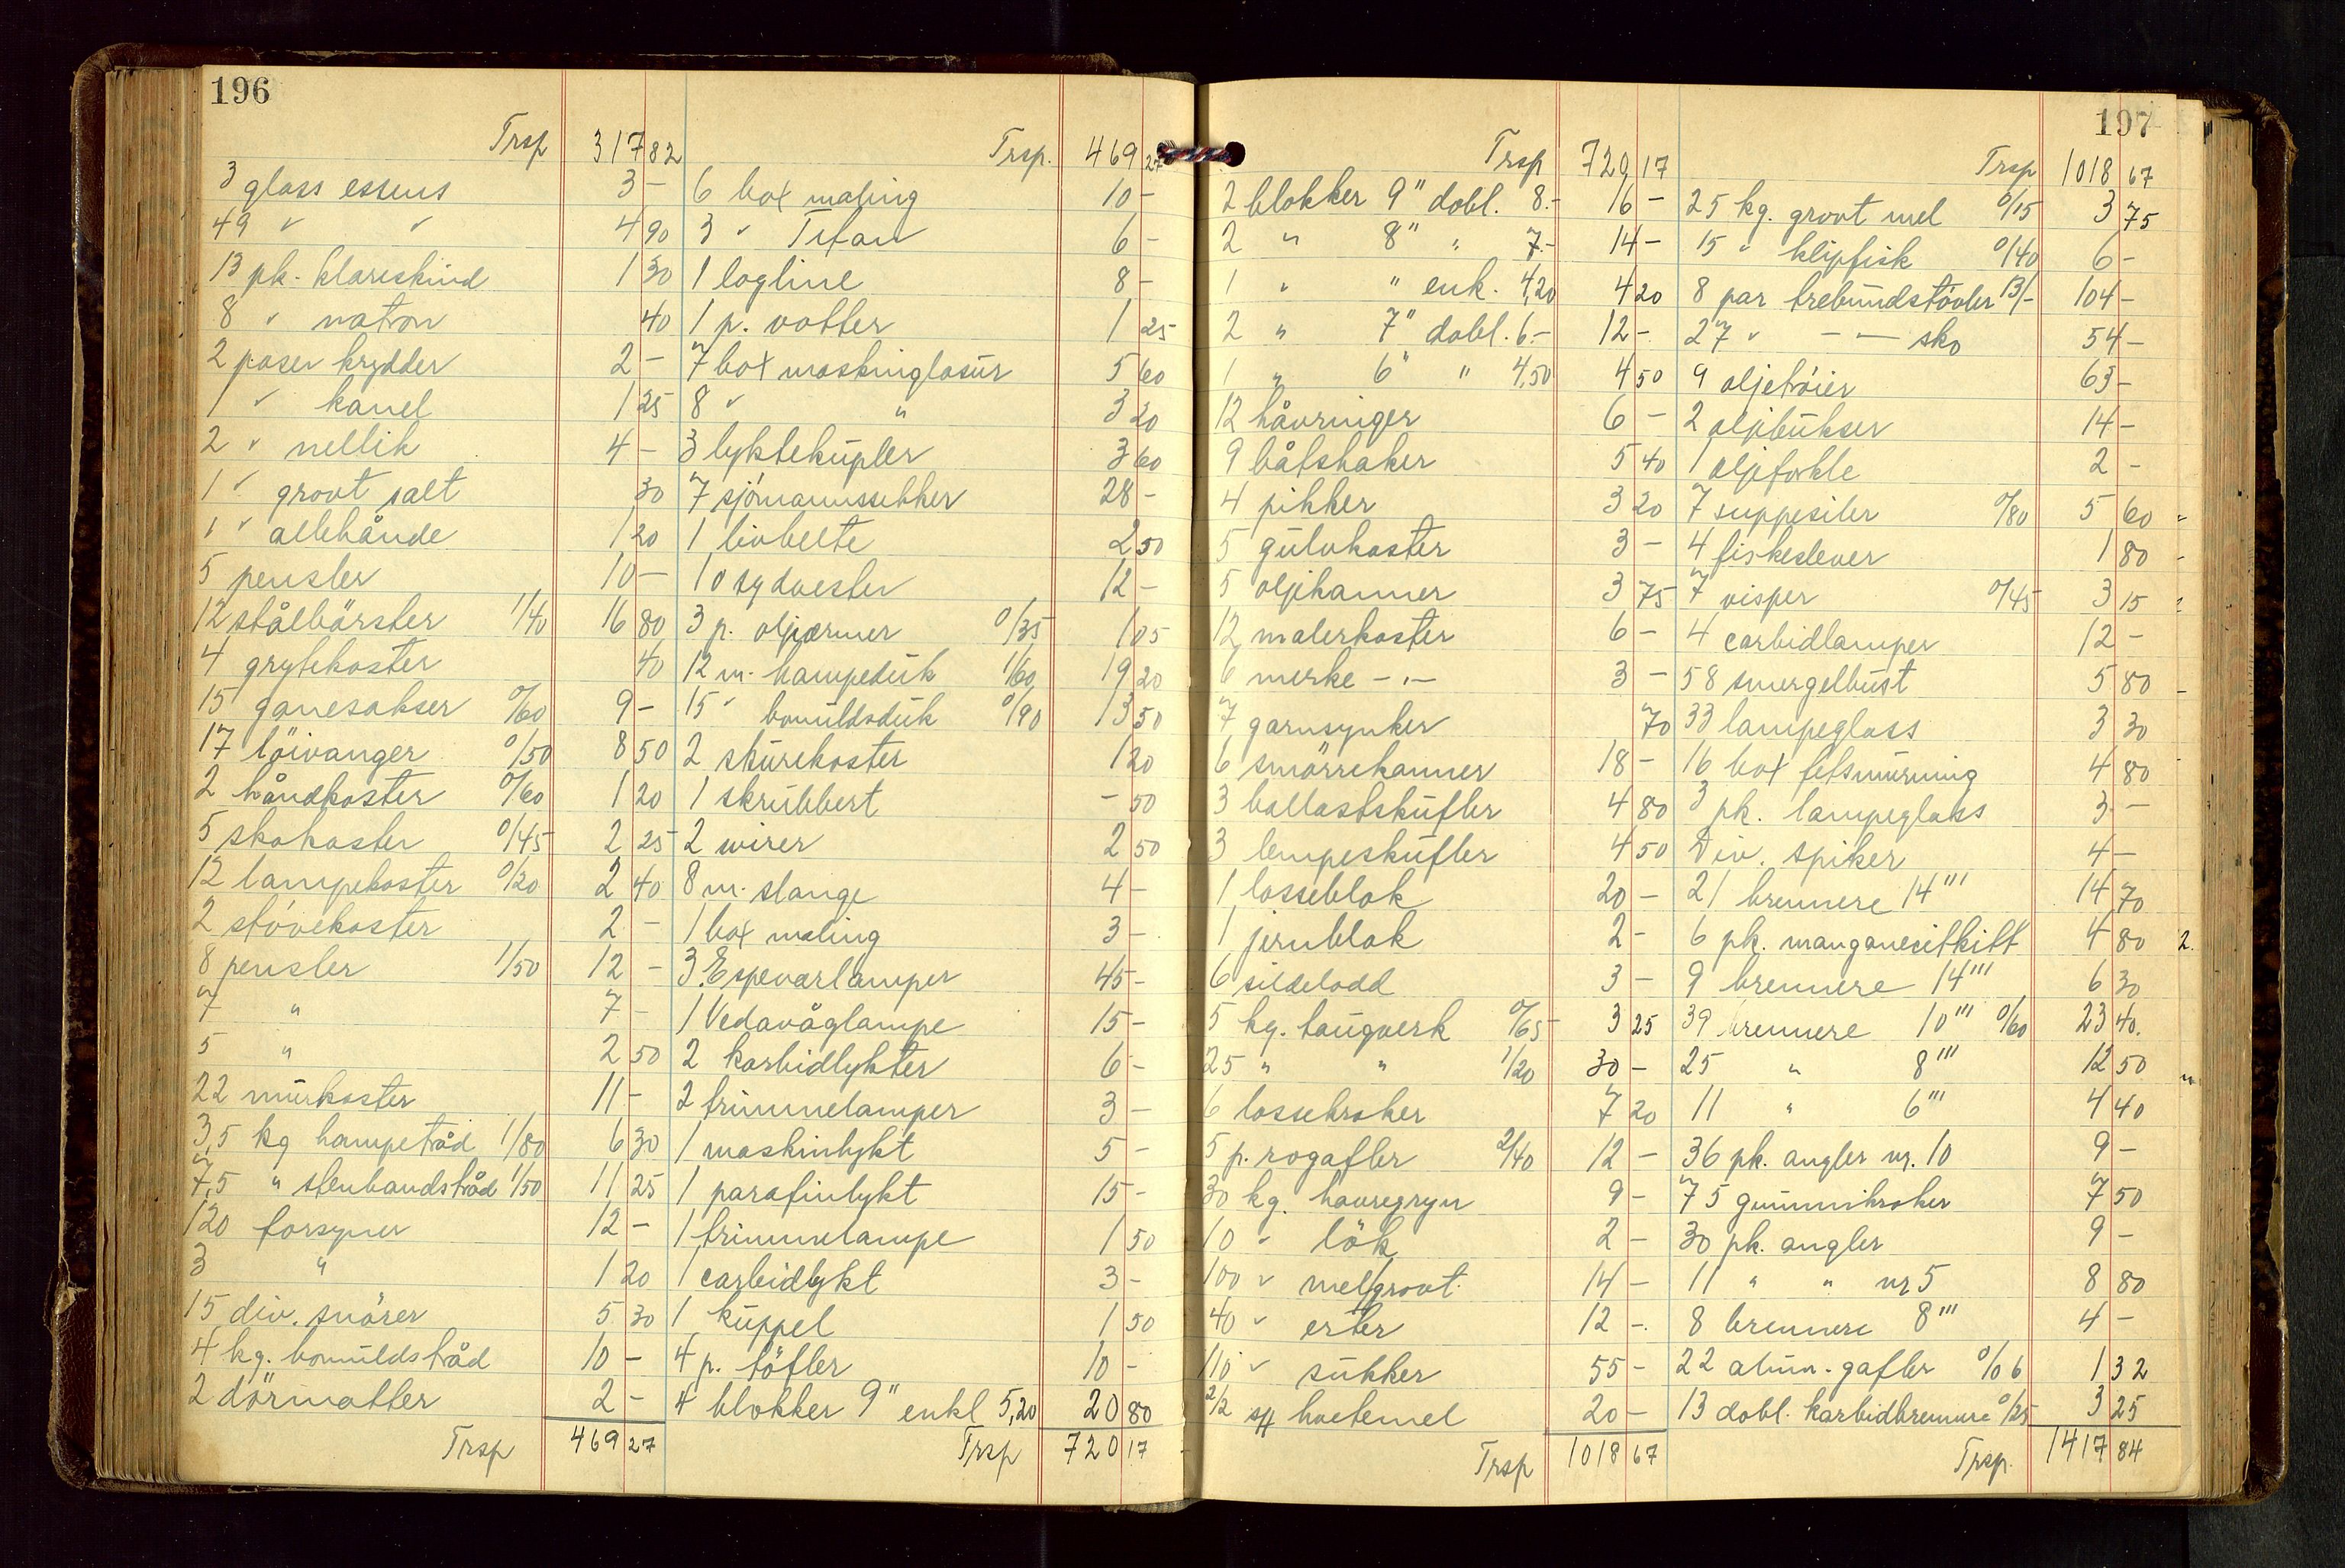 196
Trsp 317 82
3 glass essens 3 -
49 " " 4 90
13 pk. klareskind 1 30
8 " natron 40
2 poser krydder 2 -
1 " kanel 1 25
2 " nellik 4 -
1 " grovt salt 30
1 " allehånde 1 20
5 pensler 10 -
12 stålbörster 1/40 16 80
4 grytekoster 40
15 ganesakser 0/60 9 -
17 löivanger 0/50 8 50
2 håndkoster 0/60 1 20
5 skokoster 0/45 2 25
12 lampekoster 0/20 2 40
2 stövekoster 2 -
8 pensler 1/50 12 -
7 " 7 -
5 " 2 50
22 murkoster 11 -
3,5 kg hampetråd 1/80 6 30
7,5 " stenbandstråd 1/50 11 25
120 forsyner 12 -
3 " 1 20
15 div. snörer 5 30
4 kg. bomuldstråd 10 -
2 dörmatter 2 -
Trsp 469 27
Trsp. 469 27
6 box maling 10 -
3 " Titan 6 -
1 logline 8 -
1 p. votter 1 25
7 box maskinglasur 5 60
8 " " 3 20
3 lyktekupler 3 60
7 sjömannssekker 28 -
1 livbelte 2 50
10 sydvester 12 -
3 p. oljeermer 0/35 1 05
12 m. hampeduk 1/60 19 20
15 " bomuldsduk 0/90 13 50
2 skurekoster 1 20
1 skrubbert - 50
2 wirer 2 50
8 m. slange 4 -
1 box maling 3 -
3 Espevarlamper 45 -
1 Vedavåglampe 15 -
2 karbidlykter 6 -
2 trimmelamper 3 -
1 maskinlykt 5 -
1 parafinlykt 15 -
1 trimmelampe 1 50
1 carbidlykt 3 -
1 kuppel 1 50
4 p. töfler 10 -
4 blokker 9" enkl 5,20 20 80
Trsp 720 17
Trsp 720 17
2 blokker 9" dobl. 8.- 16 -
2 " 8" " 7.- 14 -
1 " " enk. 4,20 4 20
2 " 7" dobl. 6.- 12 -
1 " 6" " 4,50 4 50
12 håvringer 6 -
9 båtshaker 5 40
4 pikker 3 20
5 gulvkoster 3 -
5 oljekanner 3 75
12 malerkoster 6 -
6 merke -"- 3 -
7 garnsynker 70
6 smörrekanner 18 -
3 ballastskufler 4 80
3 lempeskufler 4 50
1 losseblok 20 -
1 jernblok 2 -
6 sildelodd 3 -
5 kg. taugverk 0/65 3 25
25 " " 1/20 30 -
6 lossekroker 7 20
5 p. rogafler 2/40 12 -
30 kg. havregryn 9 -
10 " lök 2 -
100 " mel grovt. 14 -
40 " erter 12 -
110 " sukker 55 -
2/2 sk hvetemel 20 -
Trsp 1018 67
197
Trsp 1018 67
25 kg. grovt mel 0/15 3 75
15 " klipfisk 0/40 6 -
8 par trebundstövler 13/- 104 -
27 " -"- sko 54 -
9 oljetröier 63 -
2 oljebukser 14 -
1 oljeforkle 2 -
7 suppesiler 0/80 5 60
4 fiskeslever 1 80
7 visper 0/45 3 15
4 carbidlamper 12 -
58 smergelbust 5 80
33 lampeglass 3 30
16 box fetsmurning 4 80
3 pk. lampeglass 3 -
Div. spiker 4 -
21 brennere 14''' 14 70
6 pk. manganesitkitt 4 80 2.
9 brennere 14''' 6 30
39 brennere 10''' 0/60 23 40.
25 " 8''' 12 50
11 " 6''' 4 40
36 pk. angler nr. 10 9 -
75 gummikroker 7 50
30 pk. angler 9 -
11 " " nr 5 8 80
8 brennere 8''' 4 -
22 alum. gafler 0/06 1 32
13 dobl. karbidbrennere 0/25 3 25
Trsp. 1417 84